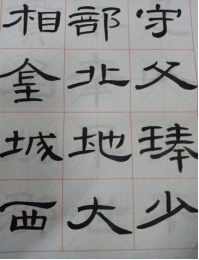 相金城西
部北地大
守父琫少